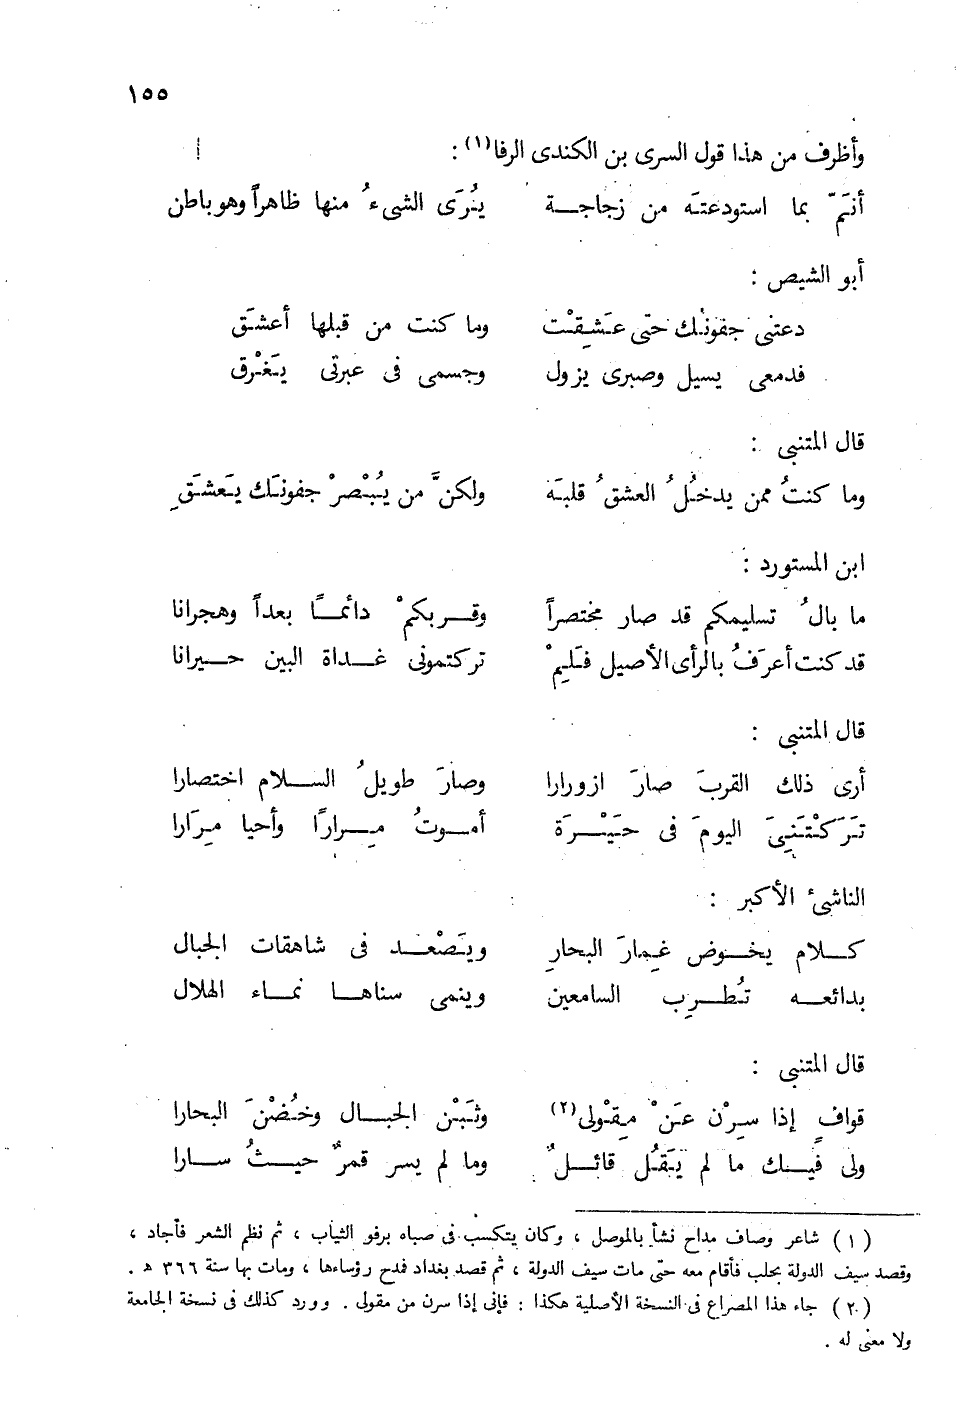 ١٥٥
وأظرف من هذا قول السرى بن الكندى الرفا(١) :
أنَمّ بما استودعتَه من زجاجــة يُرَى الشيءُ منها ظاهراً وهو باطن
أبو الشيص :
دعتنى جفونُك حتى عَشِقْت وما كنت من قبلها أعشَق
فدمعى يسيل وصبرى يزول وجسمى فى عبرتى يَغْرق
قال المتنبى :
وما كنتُ ممن يدخُلُ العشقُ قلبَه ولكنَّ من يُبْصرْ جفونَك يَعشَقِ
ابن المستورد :
ما بالُ تسليمكم قد صار مختصراً وقــربكمْ دائمــاً بعداً وهجرانا
قد كنت أعرَفُ بالرأى الأصيل فَلِمْ تركتمونى غــداة البين حــيرانا
قال المتنبى :
أرى ذلك القربَ صارَ ازورارا وصارَ طويلُ الســلام اختصارا
تَرَكْتَنِىَ اليومَ فى حَيْــرَة أمــوتُ مِــرارًا وأحيا مِرَارا
الناشىء الأكبر :
كــلام يخــوض غِمارَ البحارِ ويَصْعــد فى شاهقات الجبال
بدائعــه تُطــرِب السامعين وينمى سناهــا نمــاء الهلال
قال المتنبى :
قوافٍ إذا سِرْن عَنْ مِقْولى(٢) وثَبْن الجبــال وخُضْنَ البحارا
ولى فيــك ما لم يَقُل قائــلٌ وما لم يسر قمرٌ حيــثُ ســارا
(١) شاعر وصاف مداح نشأ بالموصل ، وكان يتكسب فى صباه برفو الثياب ، ثم نظم الشعر فأجاد ،
وقصد سيف الدولة بحلب فأقام معه حتى مات سيف الدولة ، ثم قصد بغداد فمدح رؤساءها ، ومات بها سنة ٣٦٦ هـ .
(٢) جاء هذا المصراع فى النسخة الأصلية هكذا : فإنى إذا سرن من مقولى . وورد كذلك فى نسخة الجامعة
ولا معنى له .